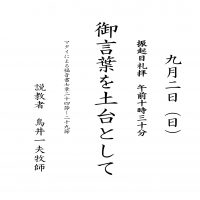 九月二日（日）
振起日礼拝　午前十時三十分
御言葉を土台として
マタイによる福音書七章二十四節～二十九節
説教者　鳥井一夫牧師